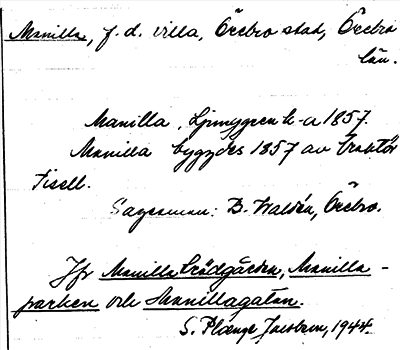 Manilla, f.d. villa, Örebro stad, Örebro
län.
Manilla, Ljunggren k-a 1857.
Manilla bygdes 1857 av traktör
Fisell.
Sagesman: B. Waldén, Örebro.
Jfr Manilla trädgården, Manilla-
parken och Manillagatan.
S. Plænge Jacobson, 1944.